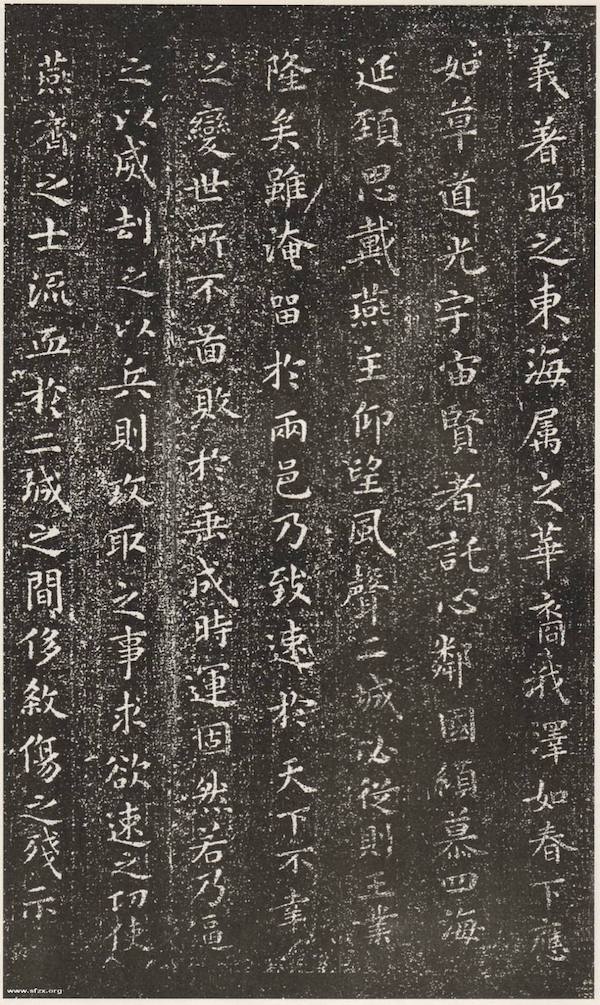 義著昭之東海属之華裔我澤如春下應
如草道光宇宙賢者託心鄰國傾慕四海
延頸思戴燕主仰望風聲二城必從則王業
隆矣雖淹留於兩邑乃致速於天下不幸
之變世所不圖敗於垂成時運固然若乃逼
之以威劫之以兵則攻取之事求欲速之功使
燕齊之士流血於二城之間侈殺傷之殘示
www.sfzx.org